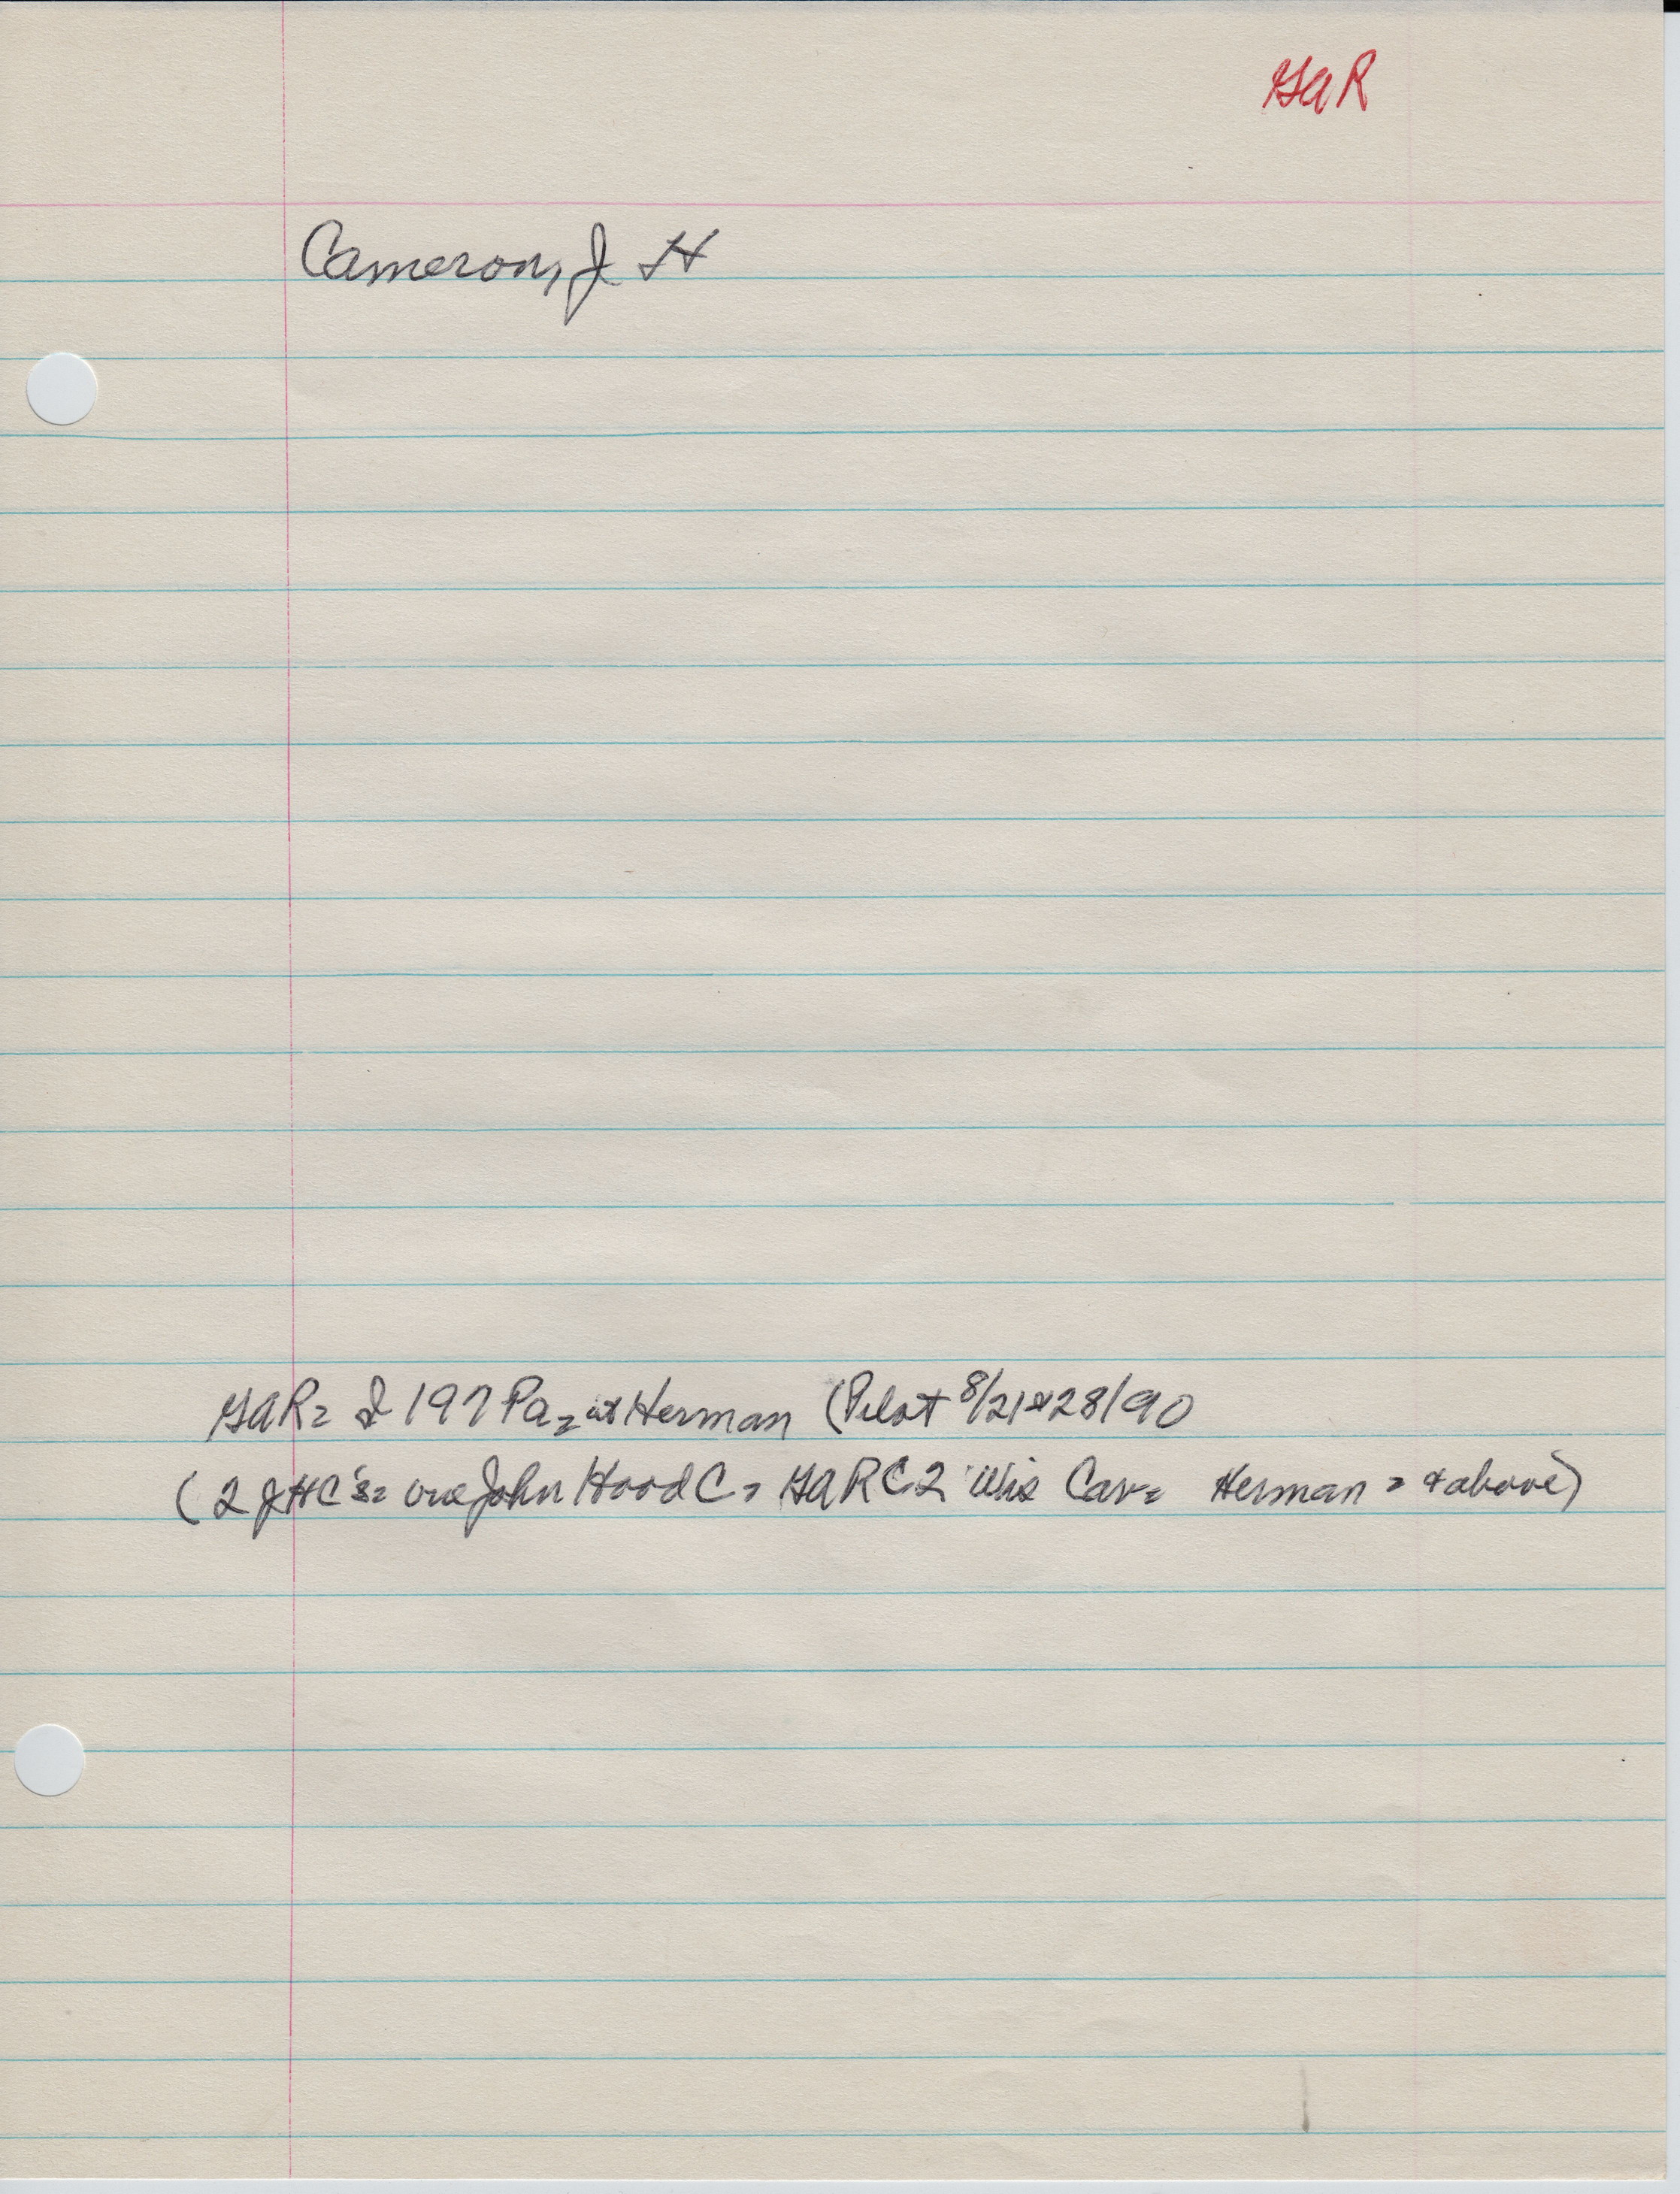 GAR
Cameron, J H
GAR= I 197 Pa= at Herman (Pilot 8/21&28/90
(2 JHC's= one John Hood C= GAR C 2 Wis Cav= Herman = & above)